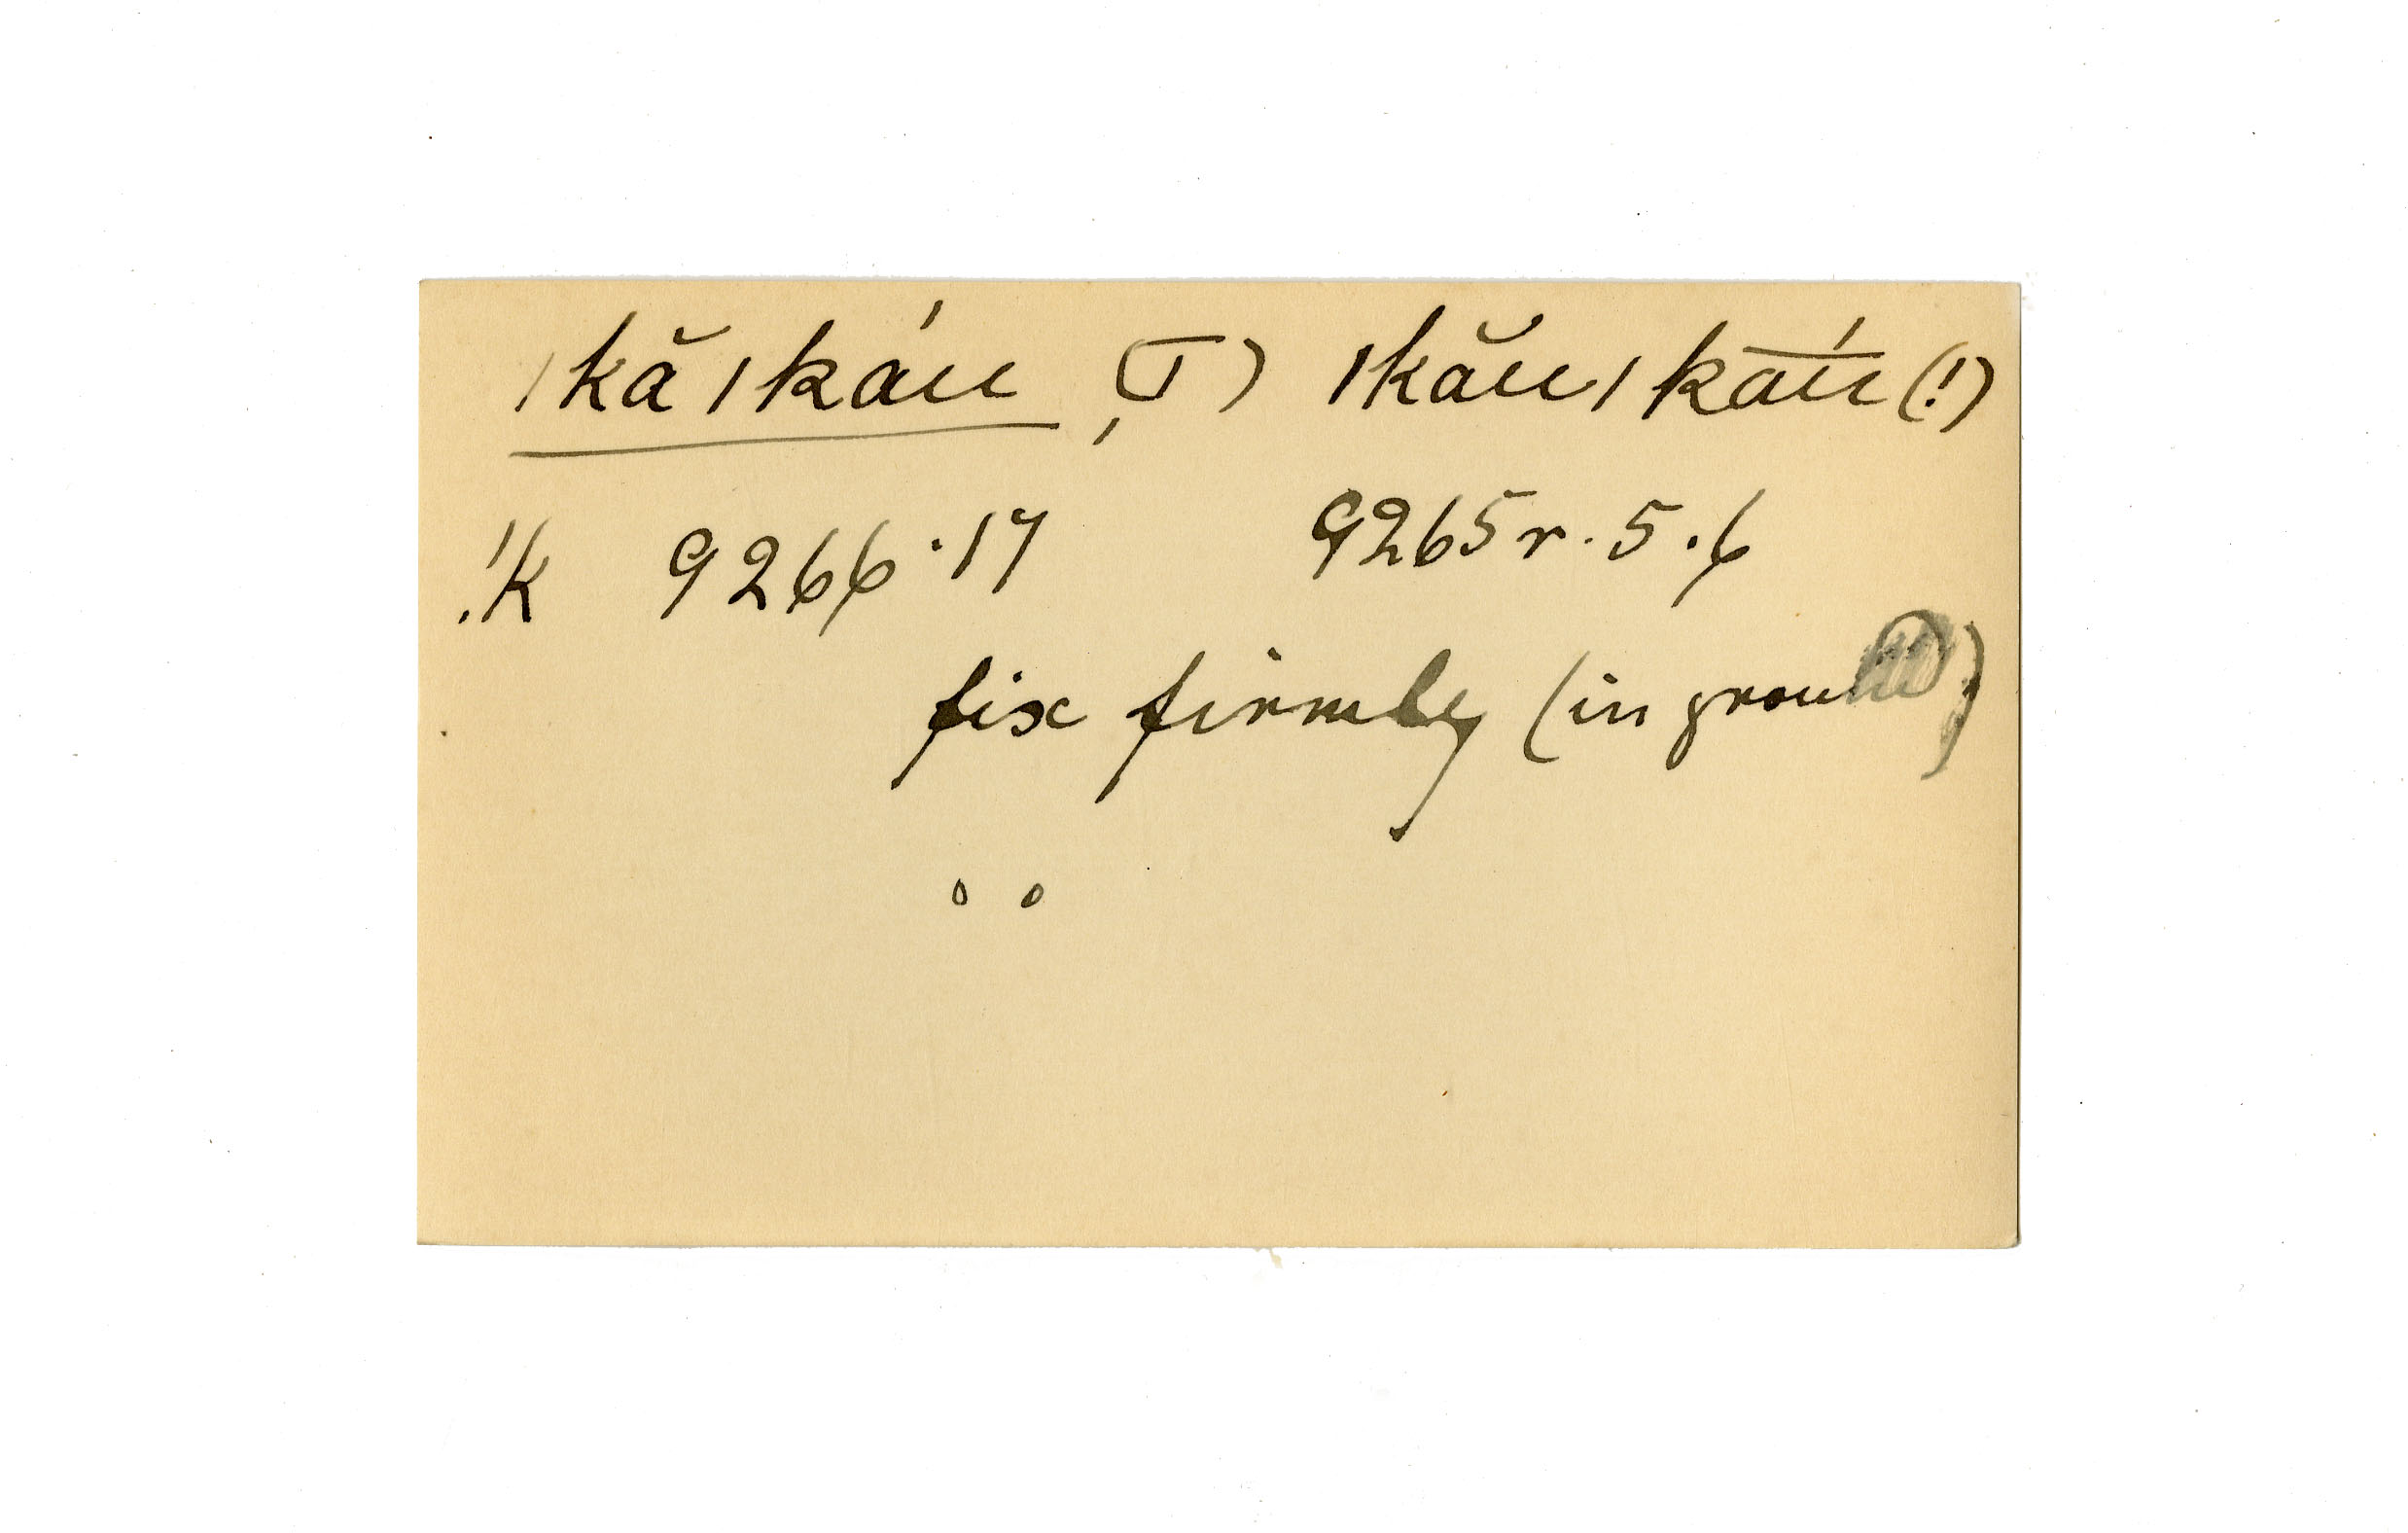 /kă/káu, (T) /kău/kā́u (!)
!k 9266.17 9265r.5.6
fix firmly (in ground)